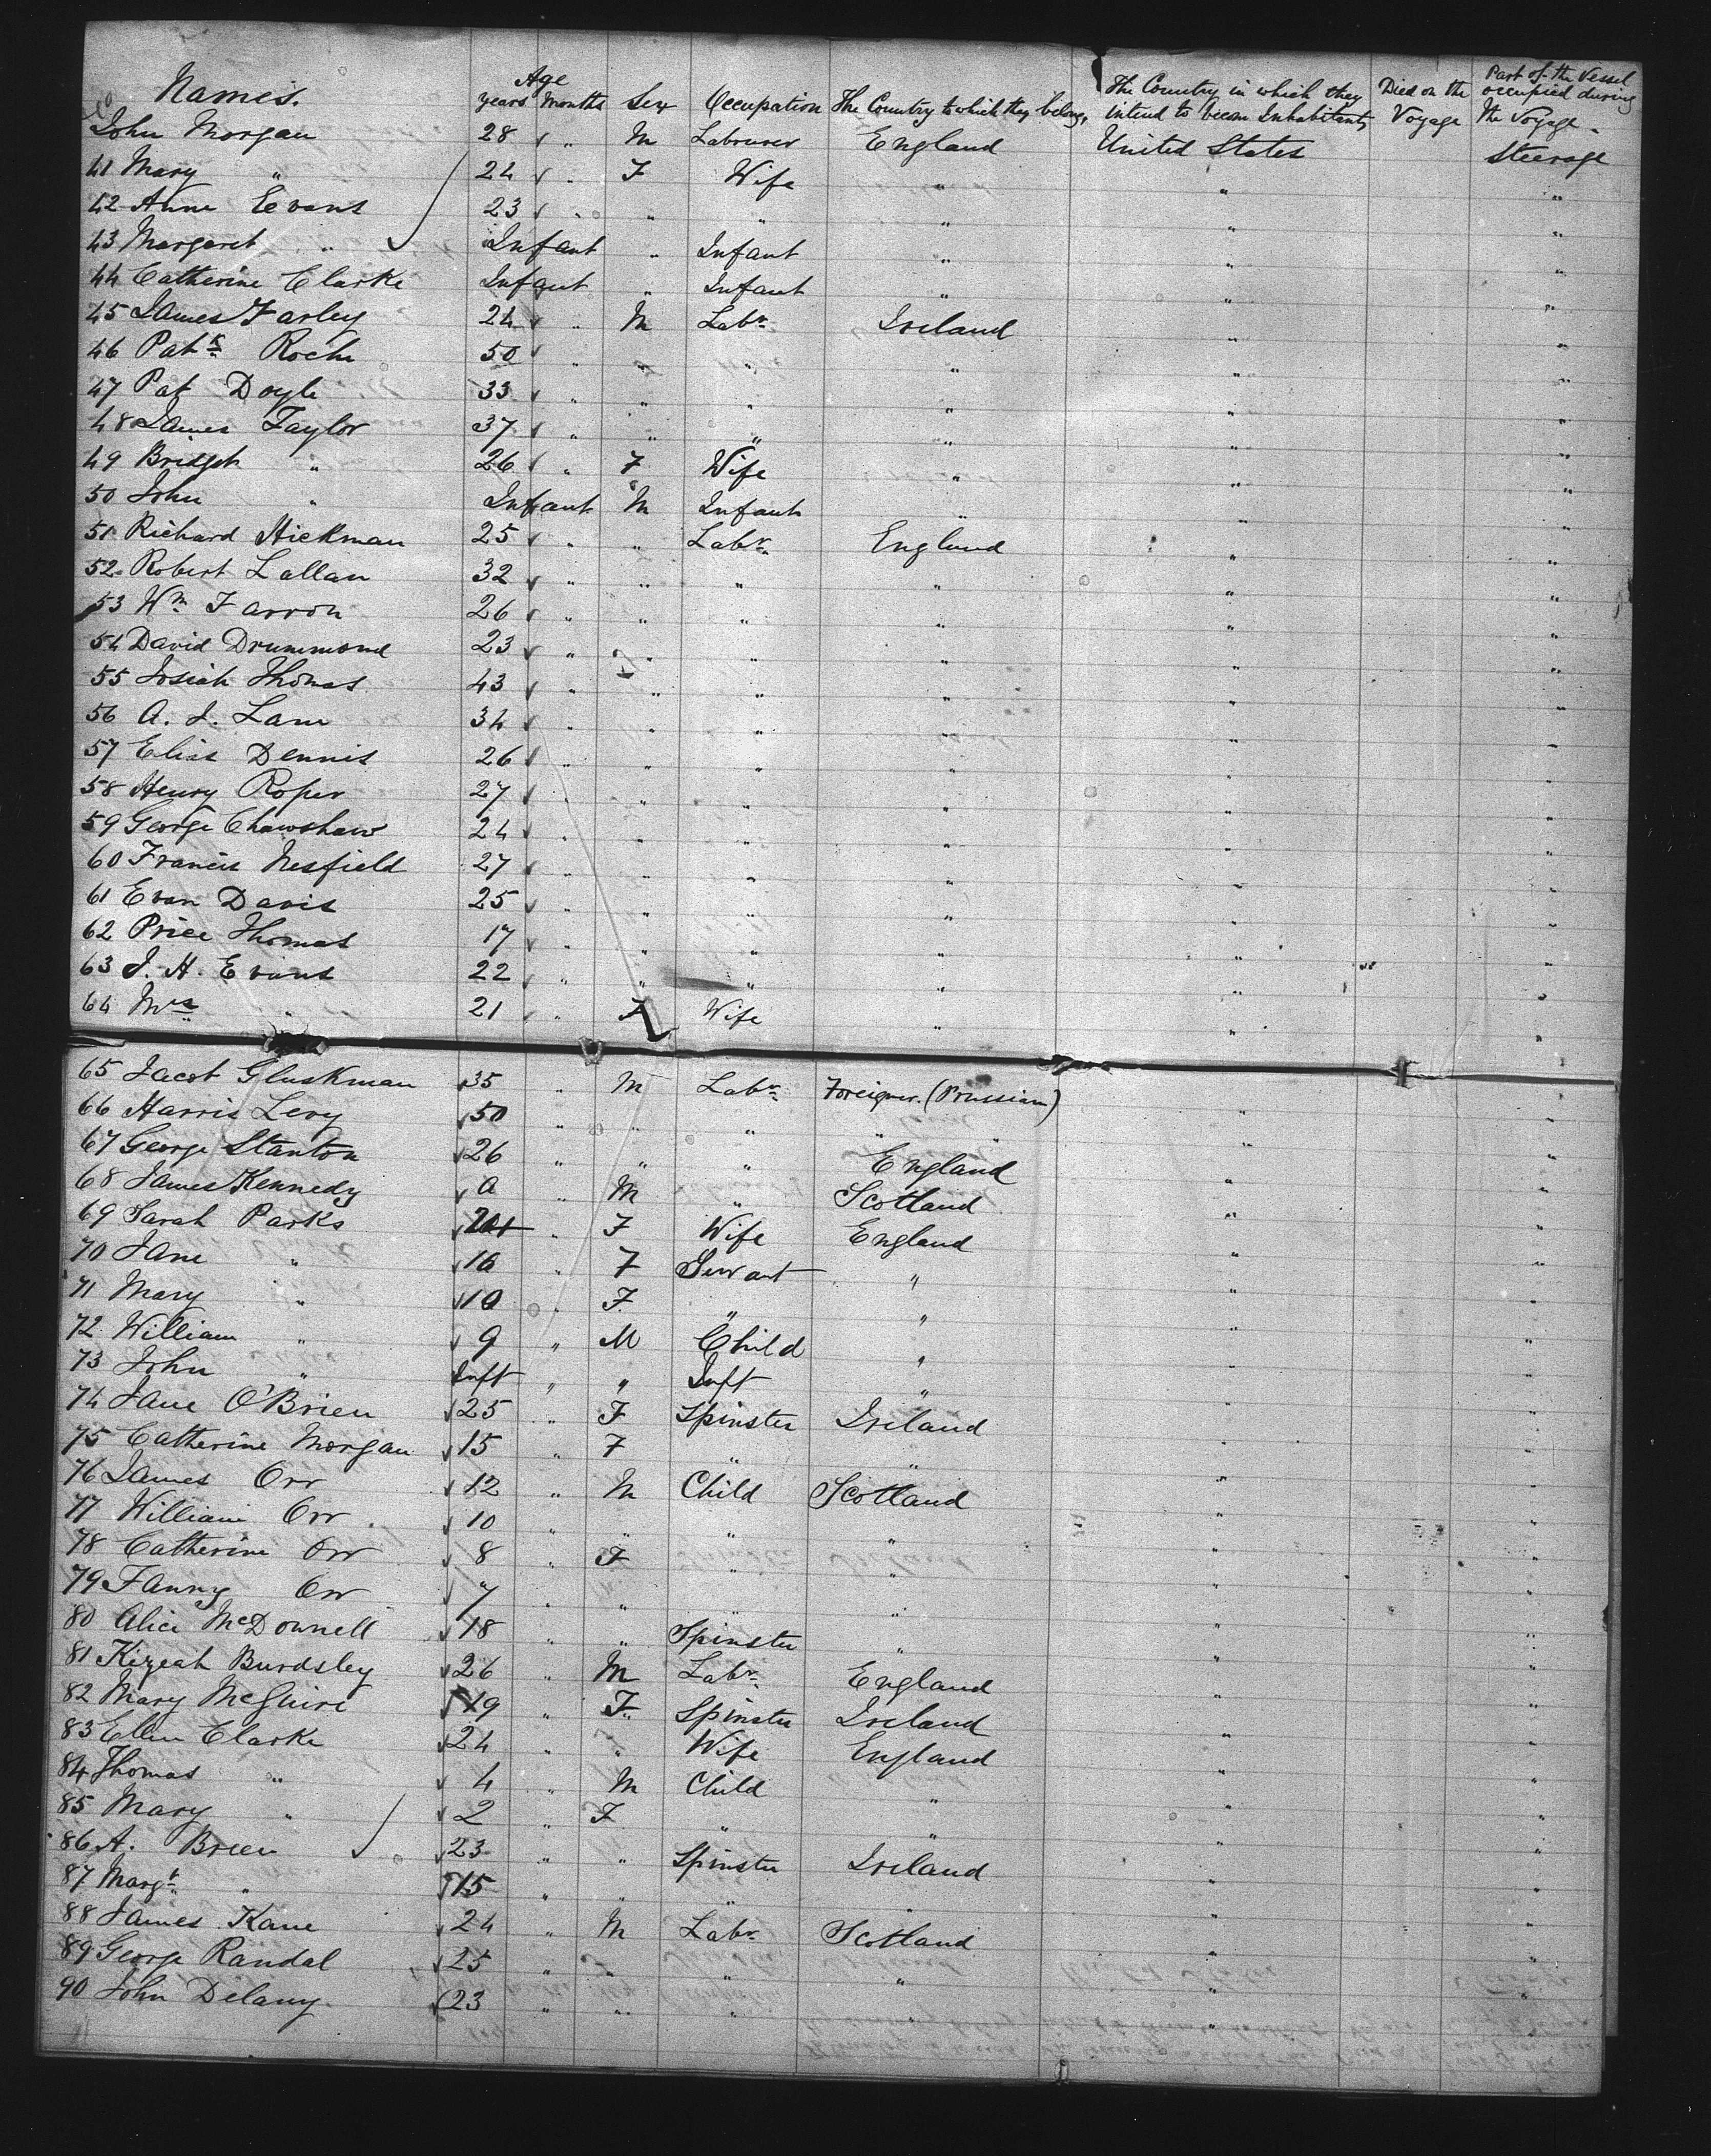 Names. Age years Months Sex Occupation The Country to which they belong, The Country in which they intend to becom Inhabitants Died on the Voyage Part of the Vessel occupied during the Voyage.
40 John Morgan 28 " M Labourer England United States Steerage
41 Mary " 24 " F Wife " " "
42 Anne Evans 23 " " " " " "
43 Margaret " Infant " Infant " " "
44 Catherine Clarke Infant " Infant " " "
45 James Farley 24 " M Labr. Ireland " "
46 Patk Roche 50 " " " " " "
47 Pat Doyle 33 " " " " " "
48 James Taylor 37 " " " " " "
49 Bridget " 26 " F Wife " " "
50 John " Infant M Infant " " "
51 Richard Hickman 25 " " Labr. England " "
52 Robert Lallan 32 " " " " " "
53 Wm Farron 26 " " " " " "
54 David Drummond 23 " " " " " "
55 Josiah Thomas 43 " " " " " "
56 A. J. Lane 34 " " " " " "
57 Elias Dennis 26 " " " " " "
58 Henry Roper 27 " " " " " "
59 George Chawshaw 24 " " " " " "
60 Francis Nesfield 27 " " " " " "
61 Evan Davis 25 " " " " " "
62 Price Thomas 17 " " " " " "
63 J. H. Evans 22 " " " " " "
64 Mrs " 21 " F Wife " " "
65 Jacob Gluskman 35 " M Labr. Foreigner. (Prussian) " "
66 Harris Levy 50 " " " " " "
67 George Stanton 26 " " " England " "
68 James Kennedy a " M " Scotland " "
69 Sarah Parks " F Wife England " "
70 Jane " 16 " F Servant " " "
71 Mary " 10 " F " " " "
72 William " 9 " M Child " " "
73 John " Inft " " Inft " " "
74 Jane O'Brien 25 " F Spinster Ireland " "
75 Catherine Morgan 15 " F " " " "
76 James Orr 12 " M Child Scotland " "
77 William Orr 10 " " " " " "
78 Catherine Orr 8 " F " " " "
79 Fanny Orr 7 " " " " " "
80 Alice McDownell 18 " " Spinster " " "
81 Kizeah Burdsley 26 " M Labr. England " "
82 Mary McGuire 19 " F Spinster Ireland " "
83 Ellen Clarke 24 " " Wife England " "
84 Thomas " 4 " M Child " " "
85 Mary " 2 " F " " " "
86 A. Breen 23 " " Spinster Ireland " "
87 Margt " 15 " " " " " "
88 James Kane 24 " M Labr Scotland " "
89 George Randal 25 " " " " " "
90 John Delany. 23 " " " "